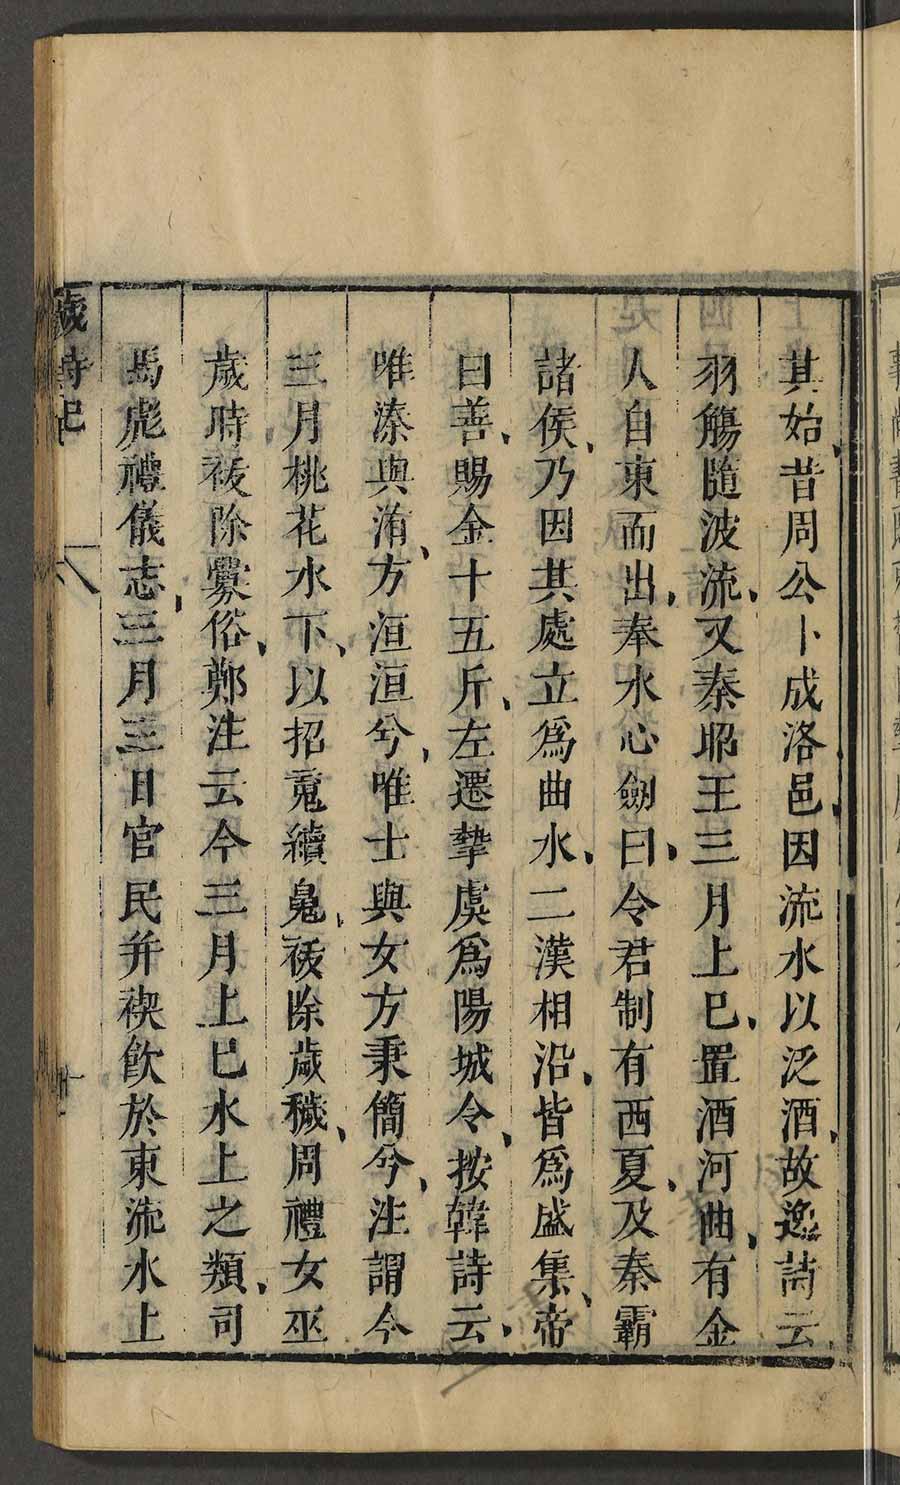 其始昔周公卜成洛邑因流水以泛酒故逸詩云
羽觴隨波流又秦昭王三月上巳置酒河曲有金
人自東而出奉水心劒曰令君制有西夏及秦霸
諸侯乃因其處立爲曲水二漢相沿皆爲盛集帝
曰善賜金十五斤左遷摯虞爲陽城令按韓詩云
唯溱與洧方洹洹兮唯士與女方秉簡兮注謂今
三月桃花水下以招䰟續魄祓除歲穢周禮女巫
歲時祓除釁俗鄭注云今三月上巳水上之類司
馬彪禮儀志三月三日官民并禊飲於東流水上
歲時記
八